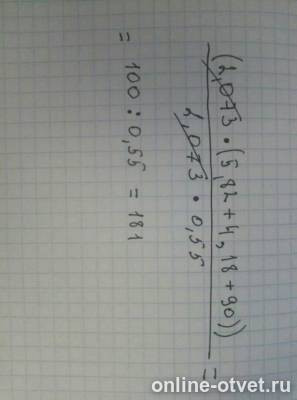 (2,073 • (5,82 + 4,18 + 90))
2,073 • 0,55 =
= 100 : 0,55 = 181
online-otvet.ru